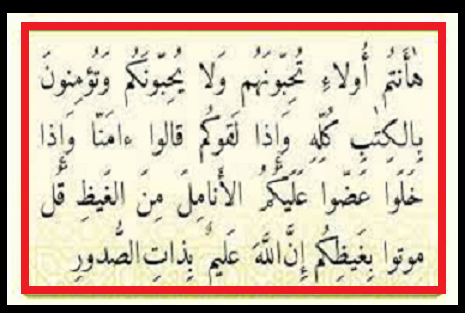 هٰأَنتُم أُولاءِ تُحِبّونَهُم وَلا يُحِبّونَكُم وَتُؤمِنونَ
بِالكِتٰبِ كُلِّهِ وَإِذا لَقوكُم قالوا ءامَنّا وَإِذا
خَلَوا عَضّوا عَلَيكُمُ الأَنامِلَ مِنَ الغَيظِ قُل
موتوا بِغَيظِكُم إِنَّ اللَّهَ عَليمٌ بِذاتِ الصُّدورِ